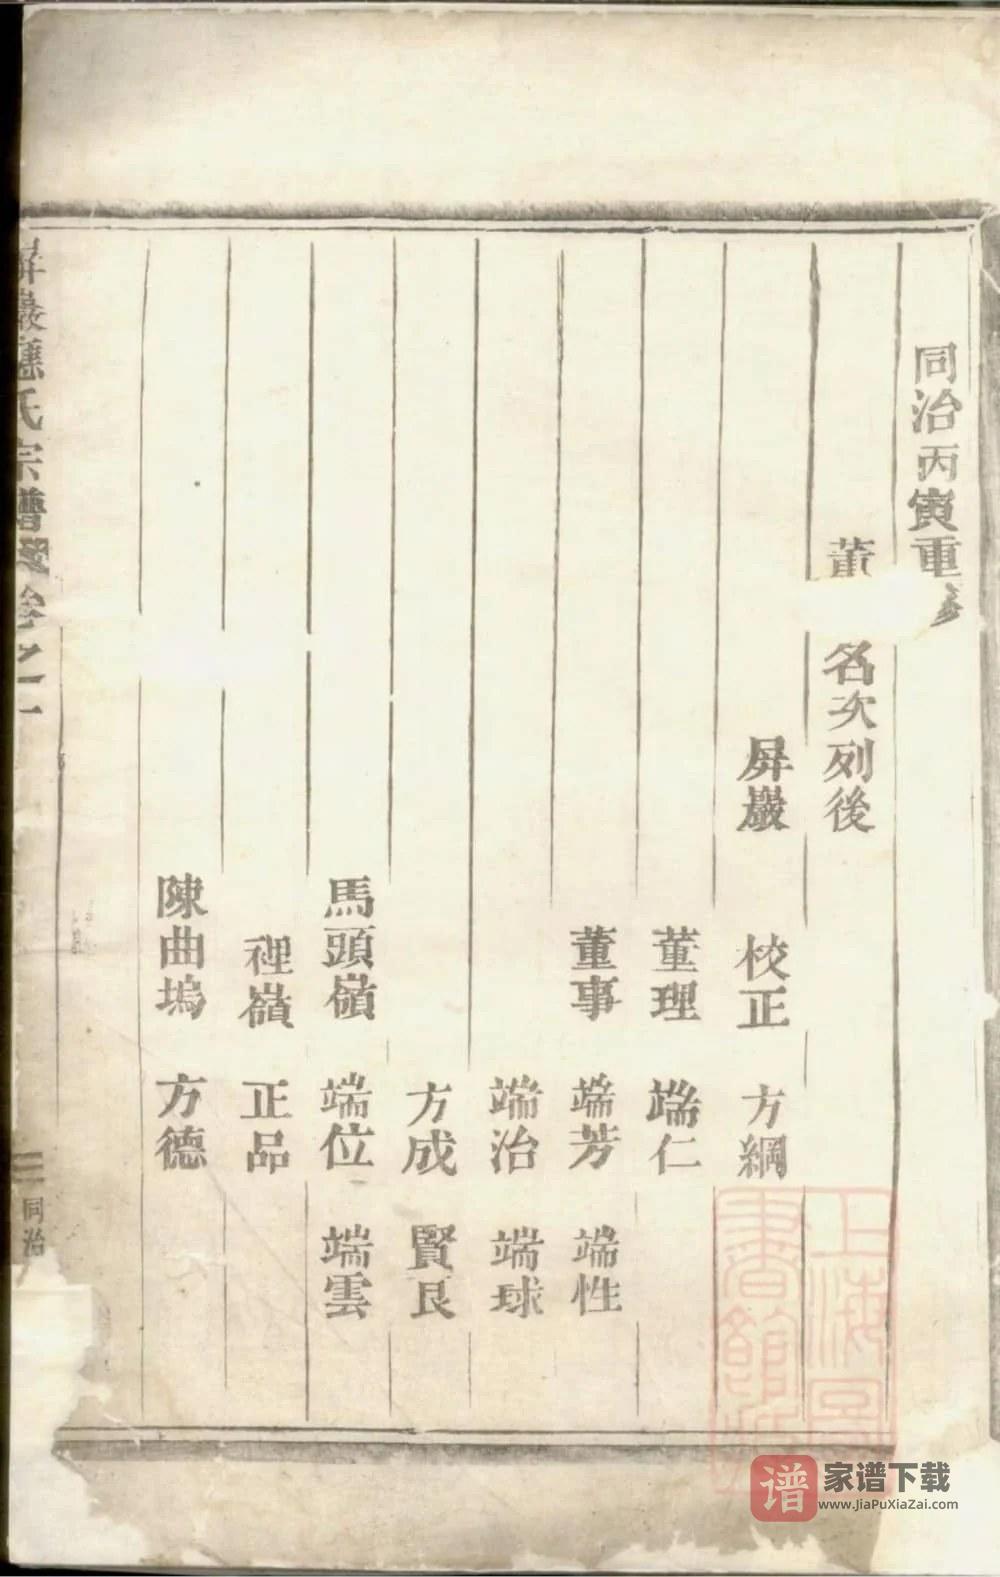 同治丙寅重修
董 名次列後
屏巖 校正 方綱
董理 端仁
董事 端芳 端性
端治 端球
方成 賢良
馬頭嶺 端位 端雲
裡嶺 正品
陳曲塢 方德
屏巖應氏宗譜 卷之一
同治
上海圖
書館藏
谱 家谱下载
www.JiaPuXiaZai.com